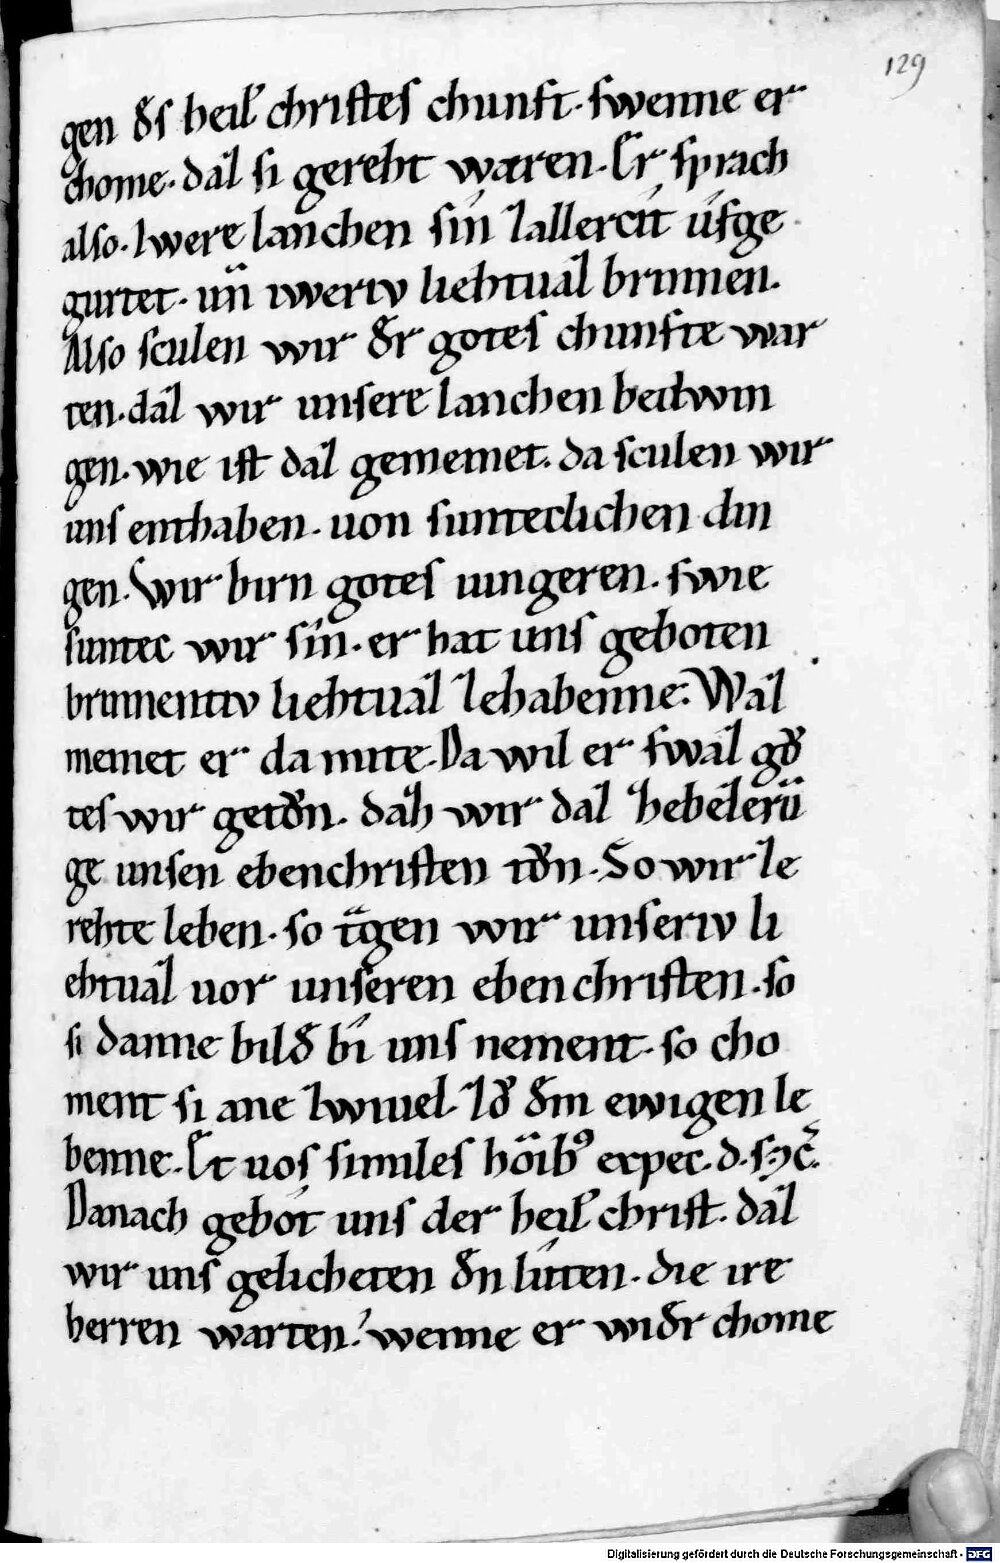 129
gen ds̄ heil̄ chriſtes chunft. ſwenne er
chome. daz ſi gereht waren. Er ſprach
alſo. Iwere lanchen ſín zallercít ûfge
gurtet. uñ iweriv liehtuaz brinnen.
Alſo ſculen wir dr̄ gotes chunfte war
ten. daz wir unſere lanchen bedwin
gen. wie iſt daz gemeinet. da ſculen wir
uns enthaben. uon ſunteclichen din
gen. Wir birn gotes iungeren. ſwie
ſuntec wir ſín. er hat uns geboten
brinnentiv liehtuaz zehabenne. Waz
meinet er da mite. Da wil er ſwaz gů
tes wir getůn. daz wir daz zebezzerū
ge unſen ebenchriſten tůn. So wir ze
rehte leben. ſo tᵃgen wir unſeriv li
ehtuaz uor unſeren ebenchriſten. ſo
ſi danne bild̄ bí uns nement. ſo cho
ment ſi ane zwiuel. zů dm̄ ewigen le
benne. Et uos ſimiles hōib⁹ expec. d. ſ. ⁊c̄.
Danach gebót uns der heil̄ chriſt. daz
wir uns gelicheten dn̄ lúten. die ire
herren warten. wenne er widr̄ chome
Digitalisierung gefördert durch die Deutsche Forschungsgemeinschaft - DFG